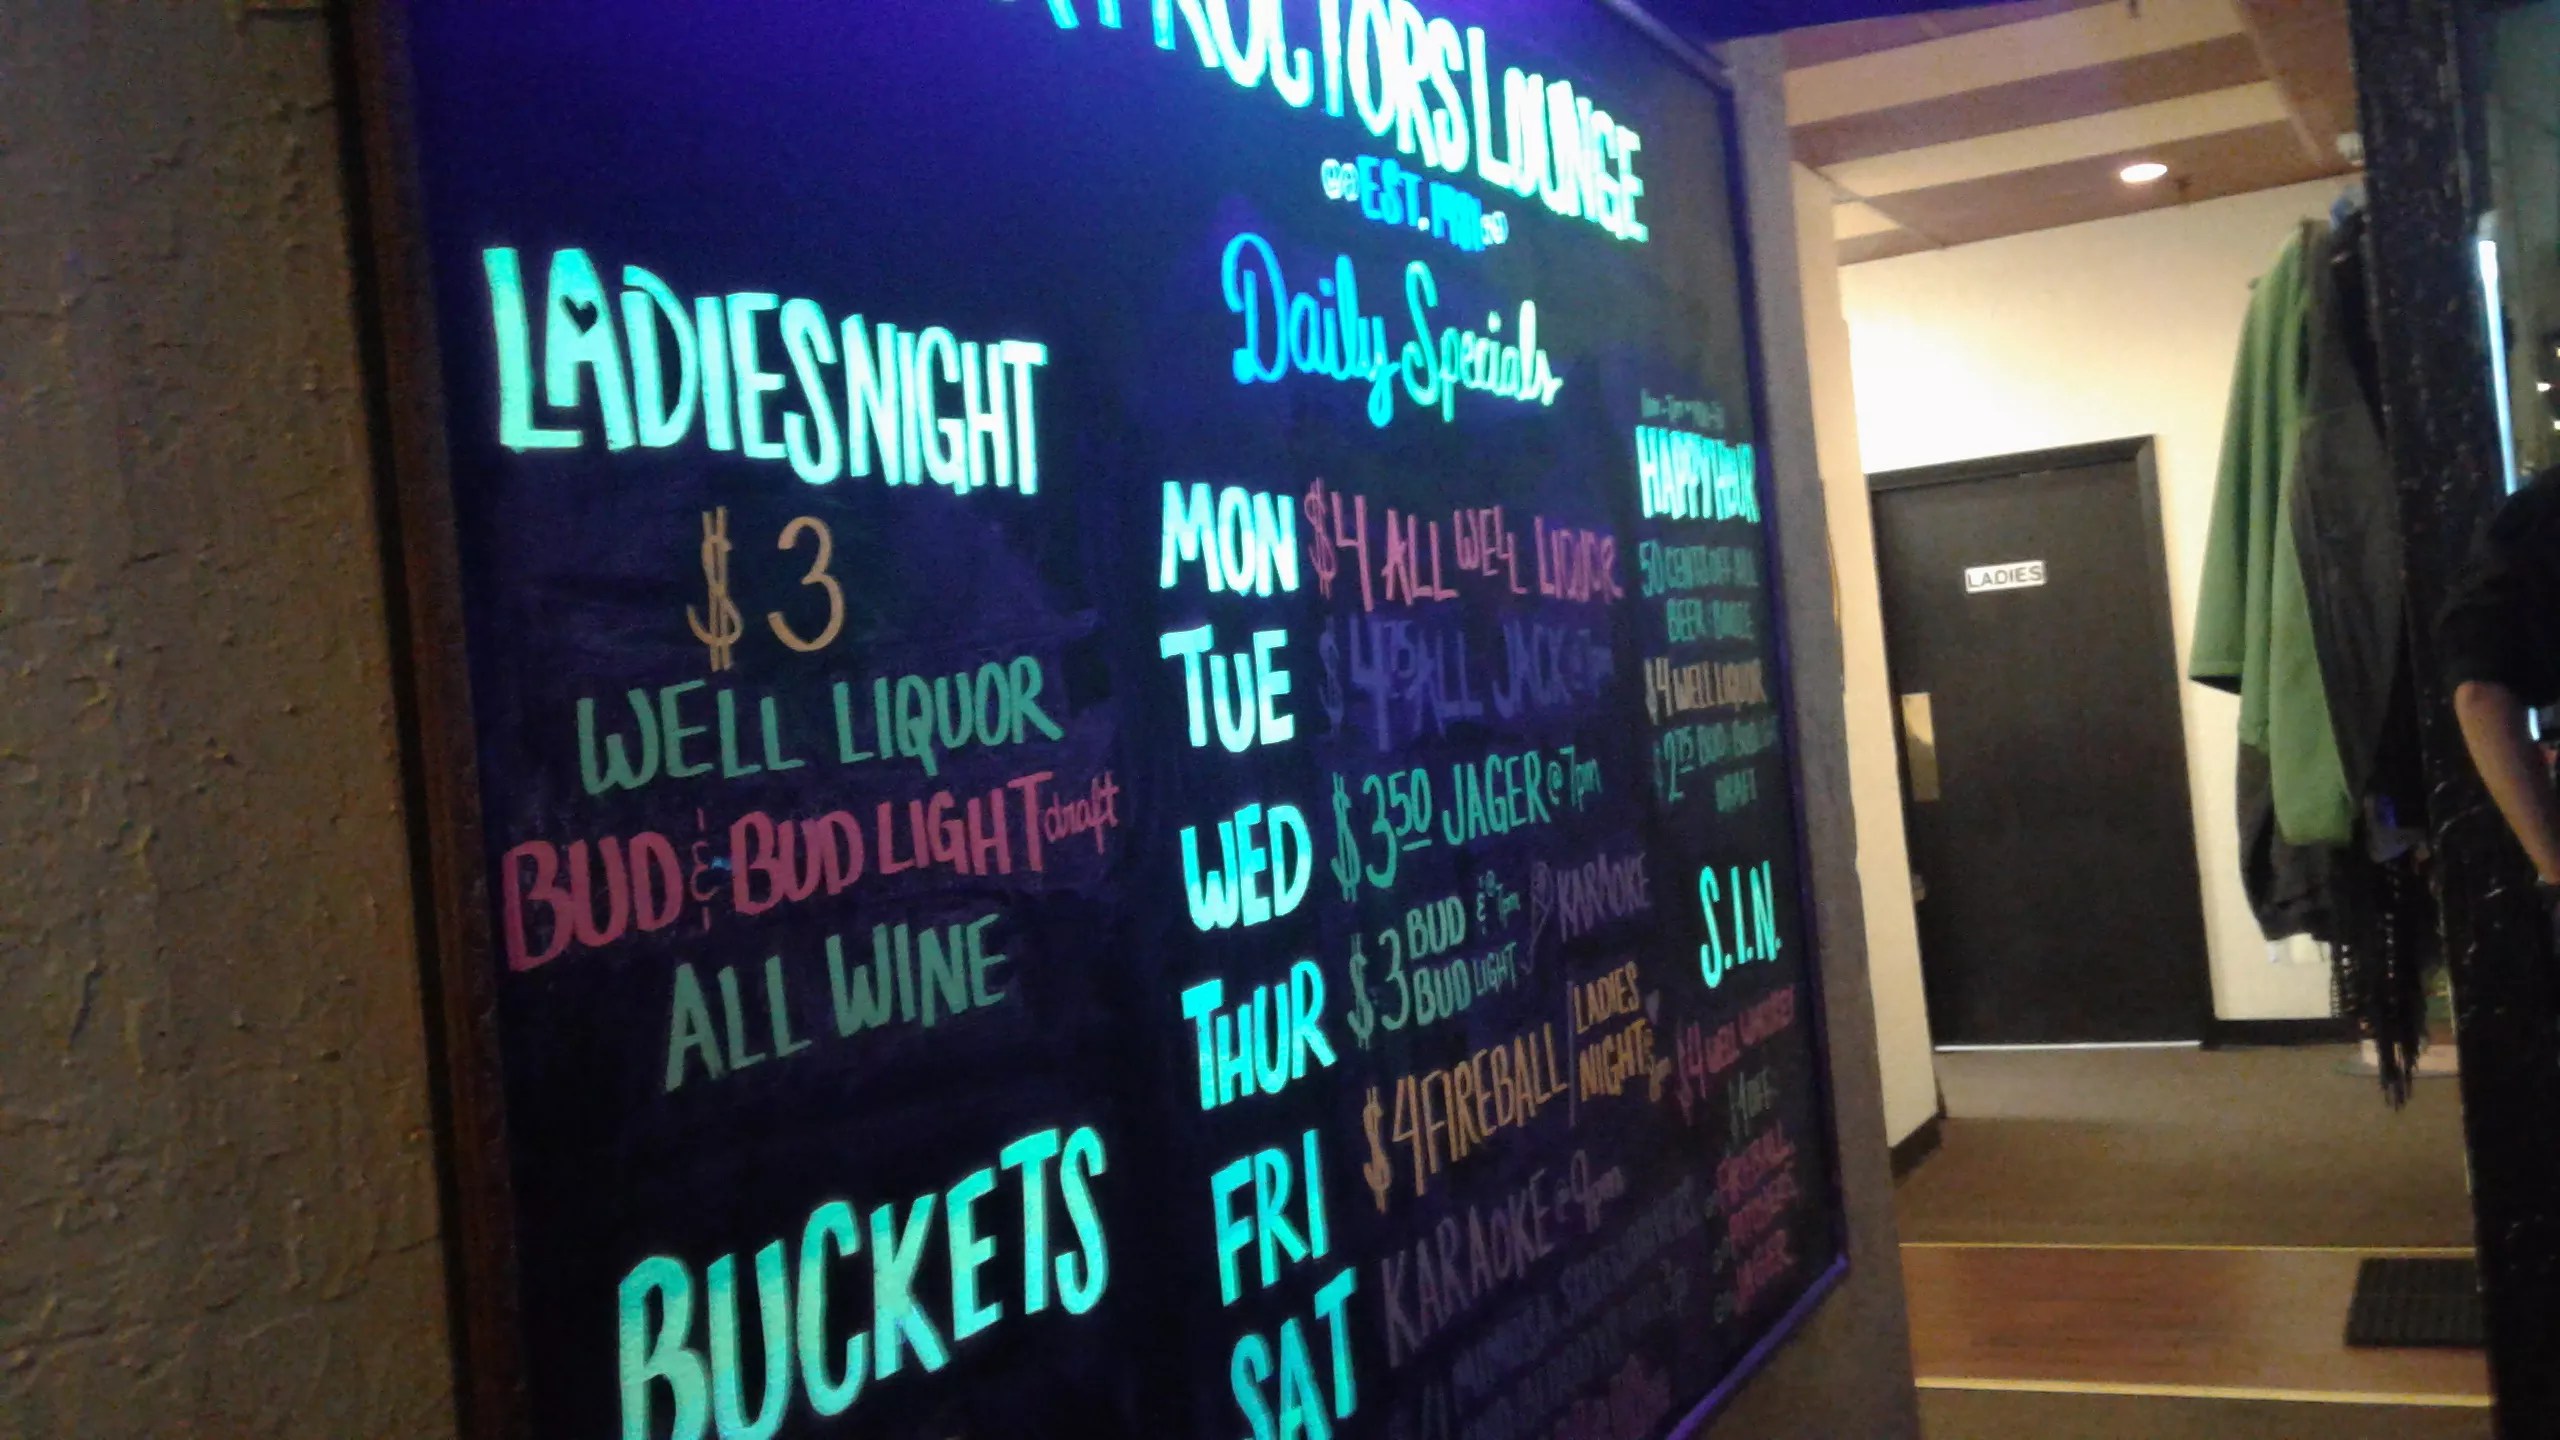 PROCTORS LOUNGE
EST.
Daily Specials
LADIES NIGHT
$3
WELL LIQUOR
BUD & BUD LIGHT draft
ALL WINE
BUCKETS
MON $4 ALL WELL LIQUOR
TUE $4 75 ALL JACK @ 7pm
WED $3 50 JAGER @ 7pm
THUR $3 BUD & BUD LIGHT @ 7pm KARAOKE
FRI $4 FIREBALL / LADIES NIGHT
SAT KARAOKE @ 9pm
HAPPY HOUR
50 CENTS OFF ALL
BEER
$4 WELL LIQUOR
$2 75 BUD & BUD
DRAFT
S.I.N.
$4 WELL WHISKEY
$1 OFF
FIREBALL
JAGER
LADIES